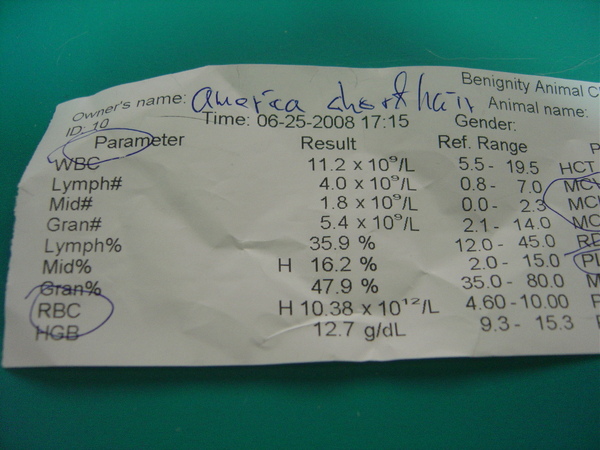 Benignity Animal C
Owner's name: America short hair Animal name:
ID: 10 Time: 06-25-2008 17:15 Gender:
Parameter Result Ref. Range P
WBC 11.2 x 10⁹/L 5.5 - 19.5 HCT
Lymph# 4.0 x 10⁹/L 0.8 - 7.0 MCV
Mid# 1.8 x 10⁹/L 0.0 - 2.3 MCH
Gran# 5.4 x 10⁹/L 2.1 - 14.0 MC
Lymph% 35.9 % 12.0 - 45.0 RD
Mid% H 16.2 % 2.0 - 15.0 PL
Gran% 47.9 % 35.0 - 80.0 M
RBC H 10.38 x 10¹²/L 4.60 - 10.00 P
HGB 12.7 g/dL 9.3 - 15.3